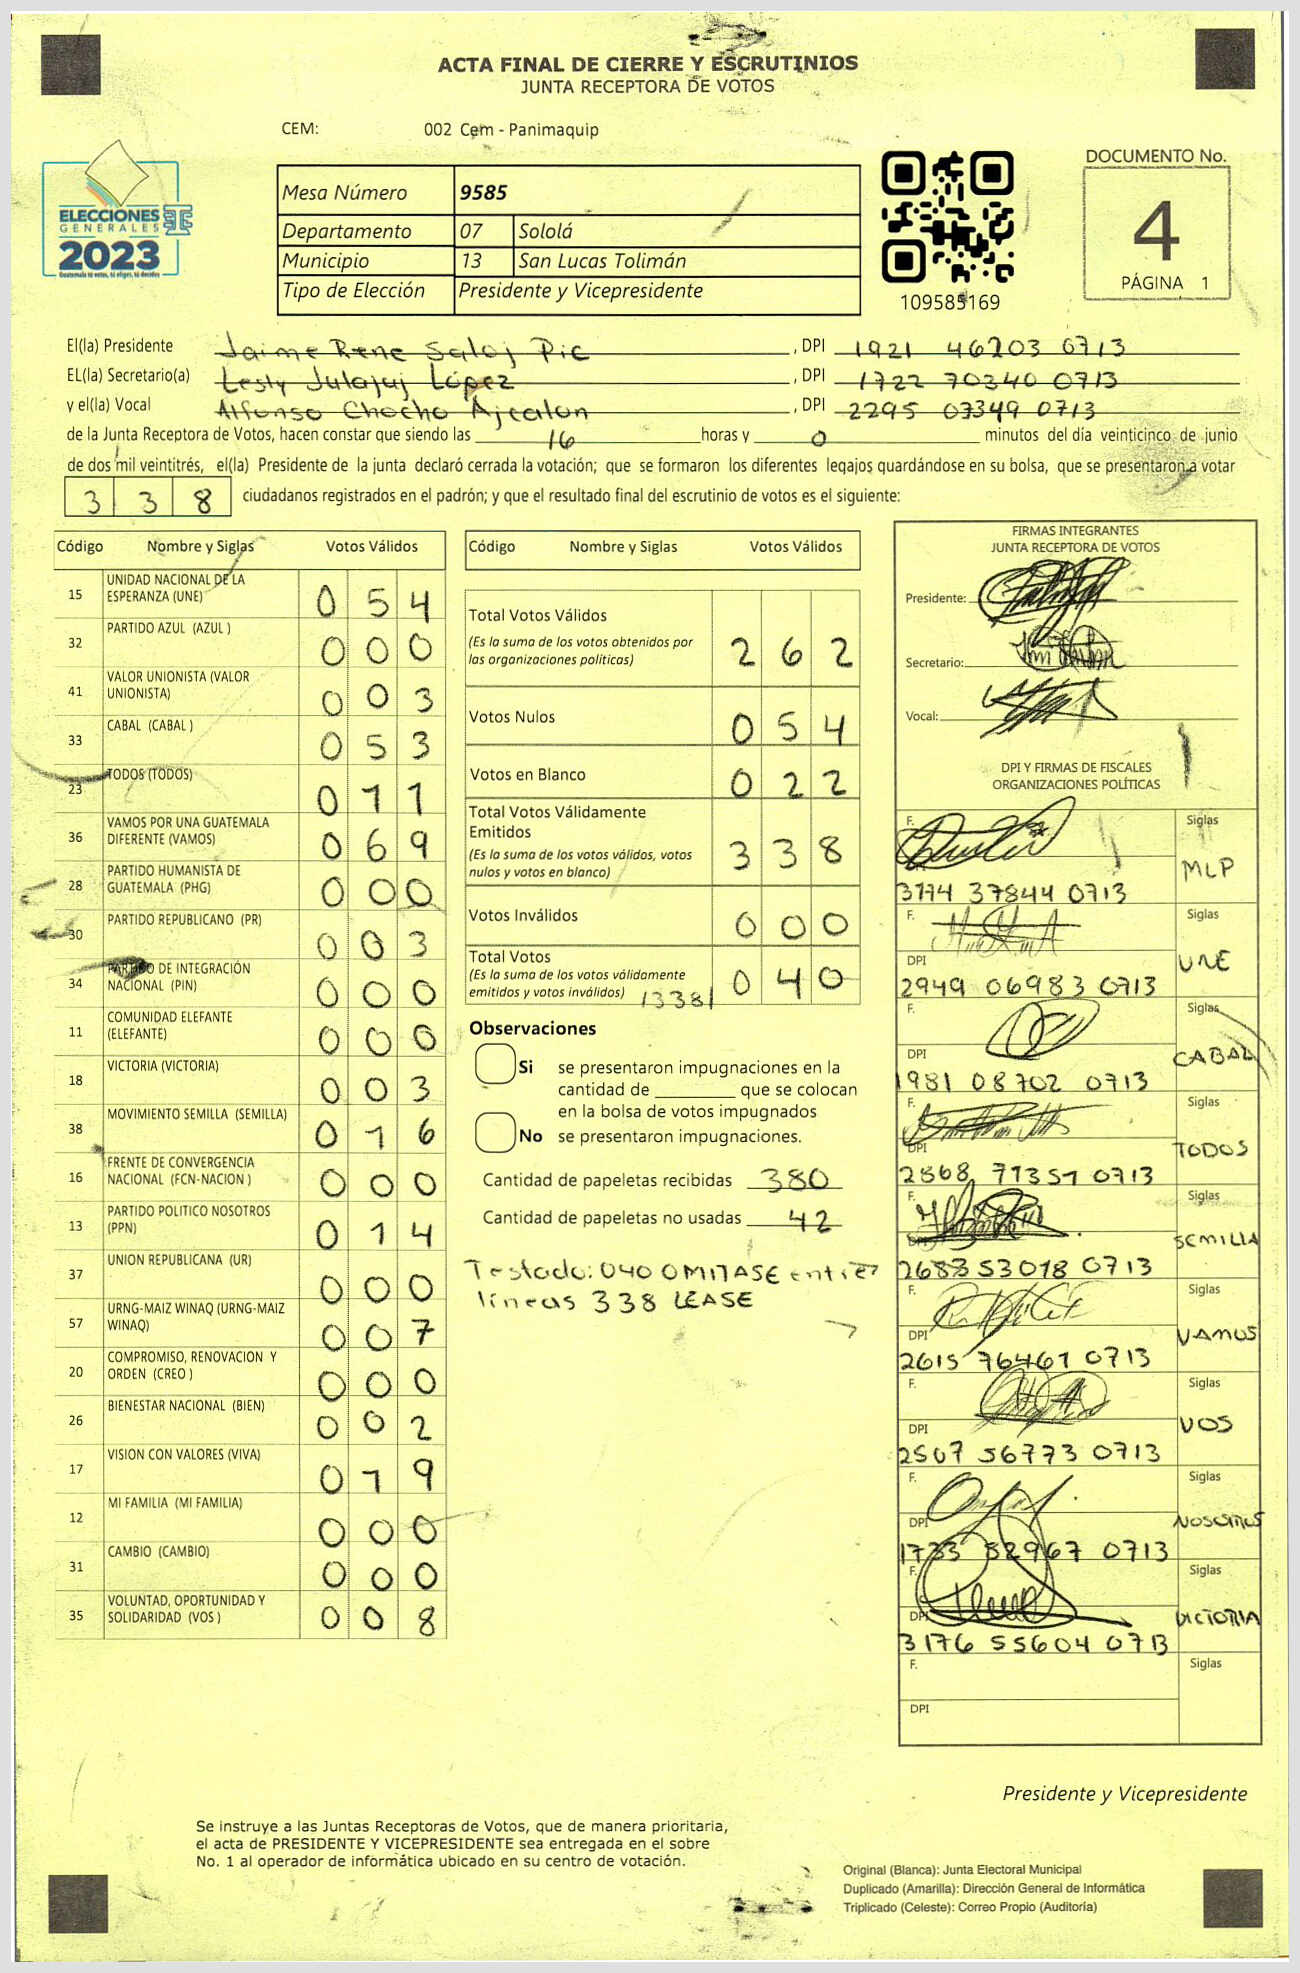 ACTA FINAL DE CIERRE Y ESCRUTINIOS
JUNTA RECEPTORA DE VOTOS
CEM: 002 Cem - Panimaquip
ELECCIONES
GENERALES
2023
Guatemala tú votas, tú eliges, tú decides
Mesa Número 9585
Departamento 07 Sololá
Municipio 13 San Lucas Tolimán
Tipo de Elección Presidente y Vicepresidente
109585169
DOCUMENTO No.
4
PÁGINA 1
El(la) Presidente Jaime Rene Saloj Pic , DPI 1921 46203 0713
EL(la) Secretario(a) Lesly Julajuj López , DPI 1722 70340 0713
y el(la) Vocal Alfonso Chocho Ajcalon , DPI 2295 07349 0713
de la Junta Receptora de Votos, hacen constar que siendo las 16 horas y 0 minutos del día veinticinco de junio
de dos mil veintitrés, el(la) Presidente de la junta declaró cerrada la votación; que se formaron los diferentes legajos guardándose en su bolsa, que se presentaron a votar
338 ciudadanos registrados en el padrón; y que el resultado final del escrutinio de votos es el siguiente:
Código Nombre y Siglas Votos Válidos
15 UNIDAD NACIONAL DE LA ESPERANZA (UNE) 0 5 4
32 PARTIDO AZUL (AZUL ) 0 0 0
41 VALOR UNIONISTA (VALOR UNIONISTA) 0 0 3
33 CABAL (CABAL ) 0 5 3
23 TODOS (TODOS) 0 1 1
36 VAMOS POR UNA GUATEMALA DIFERENTE (VAMOS) 0 6 9
28 PARTIDO HUMANISTA DE GUATEMALA (PHG) 0 0 0
30 PARTIDO REPUBLICANO (PR) 0 0 3
34 PARTIDO DE INTEGRACIÓN NACIONAL (PIN) 0 0 0
11 COMUNIDAD ELEFANTE (ELEFANTE) 0 0 0
18 VICTORIA (VICTORIA) 0 0 3
38 MOVIMIENTO SEMILLA (SEMILLA) 0 1 6
16 FRENTE DE CONVERGENCIA NACIONAL (FCN-NACION ) 0 0 0
13 PARTIDO POLITICO NOSOTROS (PPN) 0 1 4
37 UNION REPUBLICANA (UR) 0 0 0
57 URNG-MAIZ WINAQ (URNG-MAIZ WINAQ) 0 0 7
20 COMPROMISO, RENOVACION Y ORDEN (CREO ) 0 0 0
26 BIENESTAR NACIONAL (BIEN) 0 0 2
17 VISION CON VALORES (VIVA) 0 1 9
12 MI FAMILIA (MI FAMILIA) 0 0 0
31 CAMBIO (CAMBIO) 0 0 0
35 VOLUNTAD, OPORTUNIDAD Y SOLIDARIDAD (VOS ) 0 0 8
Código Nombre y Siglas Votos Válidos
Total Votos Válidos 2 6 2
(Es la suma de los votos obtenidos por
las organizaciones políticas)
Votos Nulos 0 5 4
Votos en Blanco 0 2 2
Total Votos Válidamente
Emitidos 3 3 8
(Es la suma de los votos válidos, votos
nulos y votos en blanco)
Votos Inválidos 0 0 0
Total Votos 0 4 0
(Es la suma de los votos válidamente
emitidos y votos inválidos) /338/
Observaciones
Si se presentaron impugnaciones en la
cantidad de ________ que se colocan
en la bolsa de votos impugnados
No se presentaron impugnaciones.
Cantidad de papeletas recibidas 380
Cantidad de papeletas no usadas 42
Testado: 040 OMITASE entre
líneas 338 LEASE
FIRMAS INTEGRANTES
JUNTA RECEPTORA DE VOTOS
Presidente:
Secretario:
Vocal:
DPI Y FIRMAS DE FISCALES
ORGANIZACIONES POLÍTICAS
F. Siglas
MLP
3174 37844 0713
F. Siglas
UNE
DPI
2949 06983 0713
F. Siglas
CABAL
DPI
1981 08702 0713
F. Siglas
TODOS
DPI
2868 71351 0713
F. Siglas
SEMILLA
DPI
2683 53018 0713
F. Siglas
VAMOS
DPI
2615 76461 0713
F. Siglas
VOS
DPI
2507 56773 0713
F. Siglas
NOSOTROS
DPI
1733 52967 0713
F. Siglas
VICTORIA
DPI
3176 55604 0713
F. Siglas
DPI
Presidente y Vicepresidente
Se instruye a las Juntas Receptoras de Votos, que de manera prioritaria,
el acta de PRESIDENTE Y VICEPRESIDENTE sea entregada en el sobre
No. 1 al operador de informática ubicado en su centro de votación.
Original (Blanca): Junta Electoral Municipal
Duplicado (Amarilla): Dirección General de Informática
Triplicado (Celeste): Correo Propio (Auditoría)